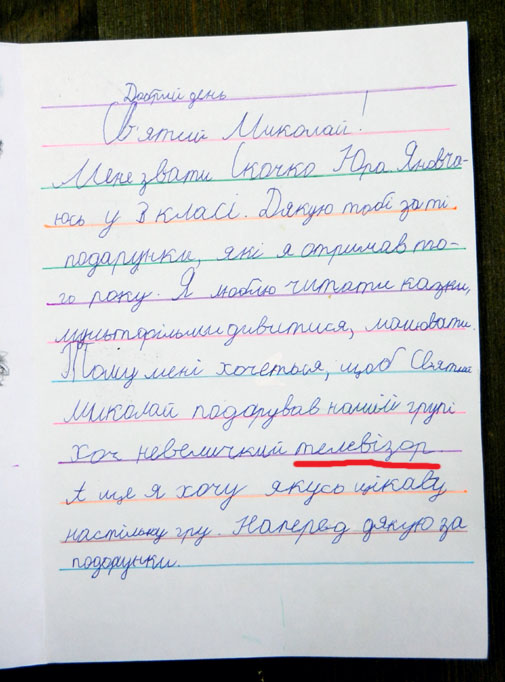 Добрий день
Святий Миколай!
Мене звати Скочко Юра. Я навча-
юсь у 3 класі. Дякую тобі за ті
подарунки, які я отримав то-
го року. Я люблю читати казки,
мультфільми дивитися, малювати.
Тому мені хочеться, щоб Святий
Миколай подарував нашій групі
хоч невеличкий телевізор.
А ще я хочу якусь цікаву
настільну гру. Наперед дякую за
подорунки.